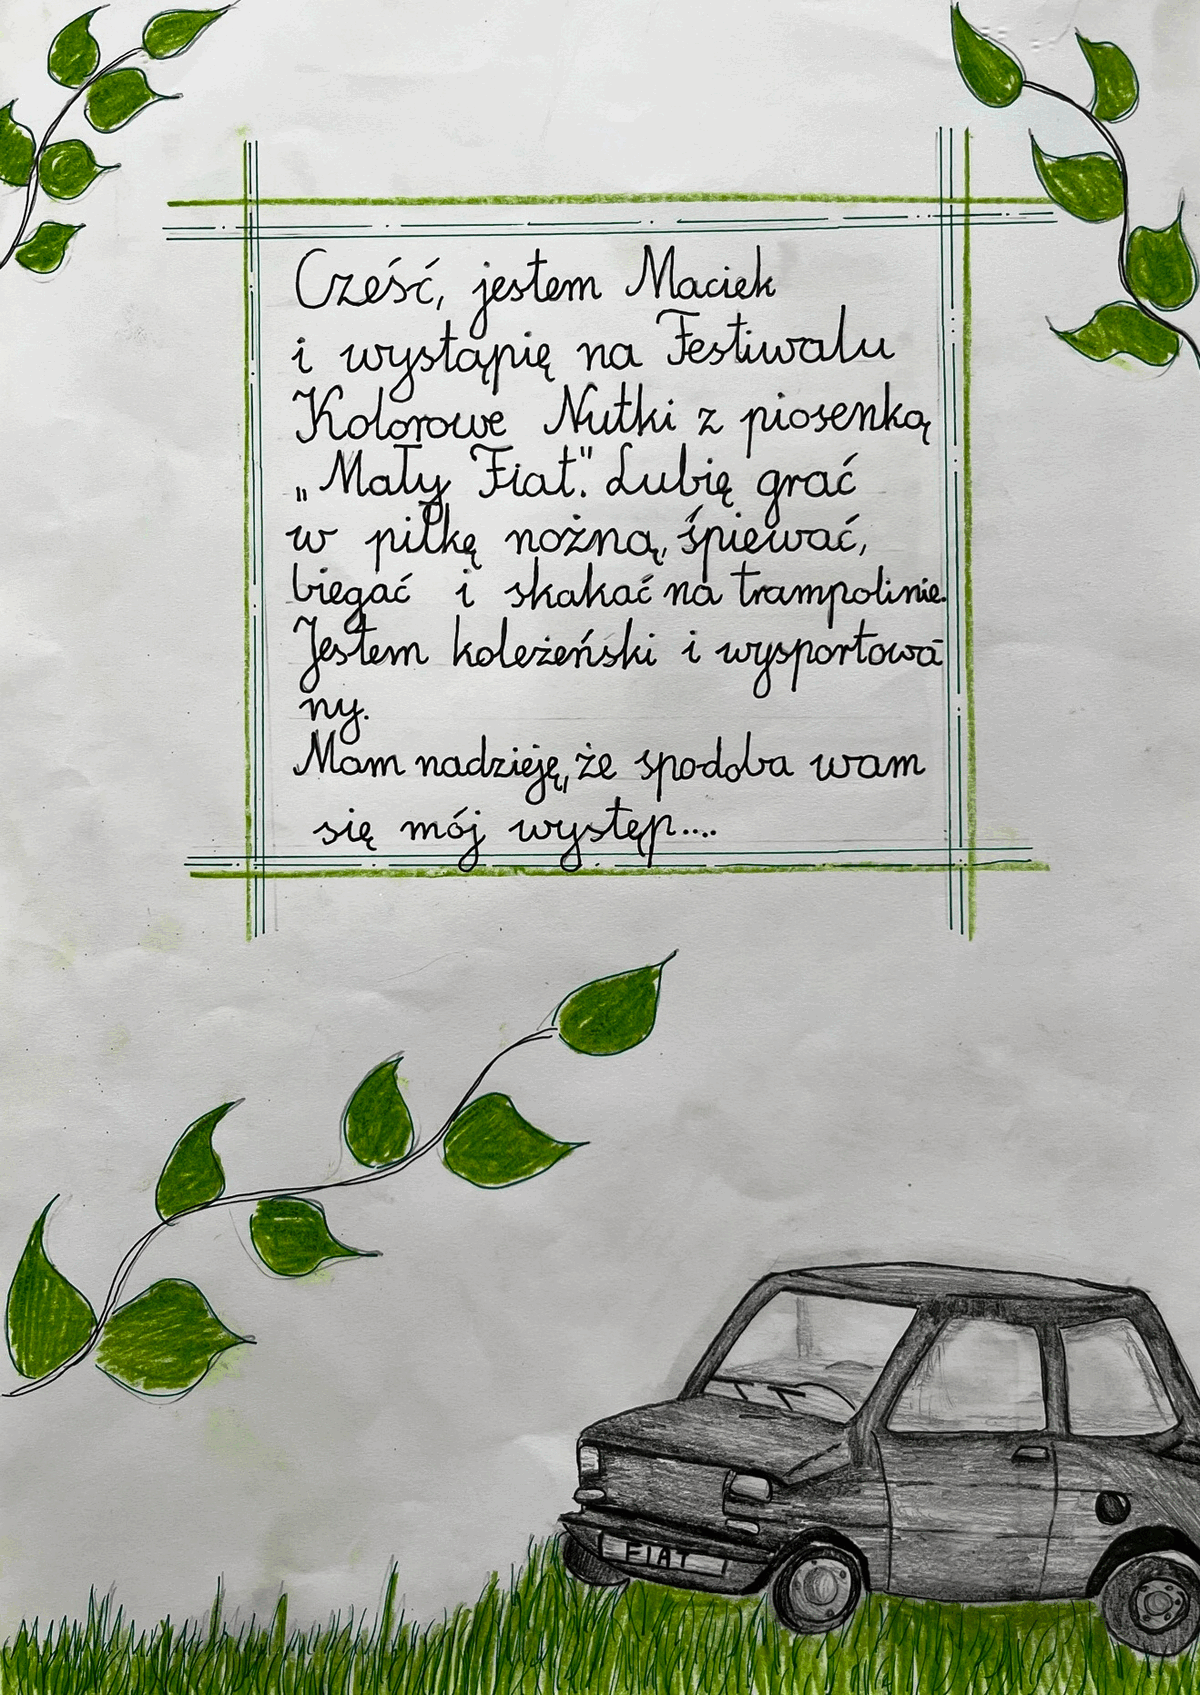 Cześć, jestem Maciek
i wystąpię na Festiwalu
Kolorowe Nutki z piosenką
„Mały Fiat". Lubię grać
w piłkę nożną, śpiewać,
biegać i skakać na trampolinie.
Jestem koleżeński i wysportowa-
ny.
Mam nadzieję, że spodoba wam
się mój występ....
FIAT